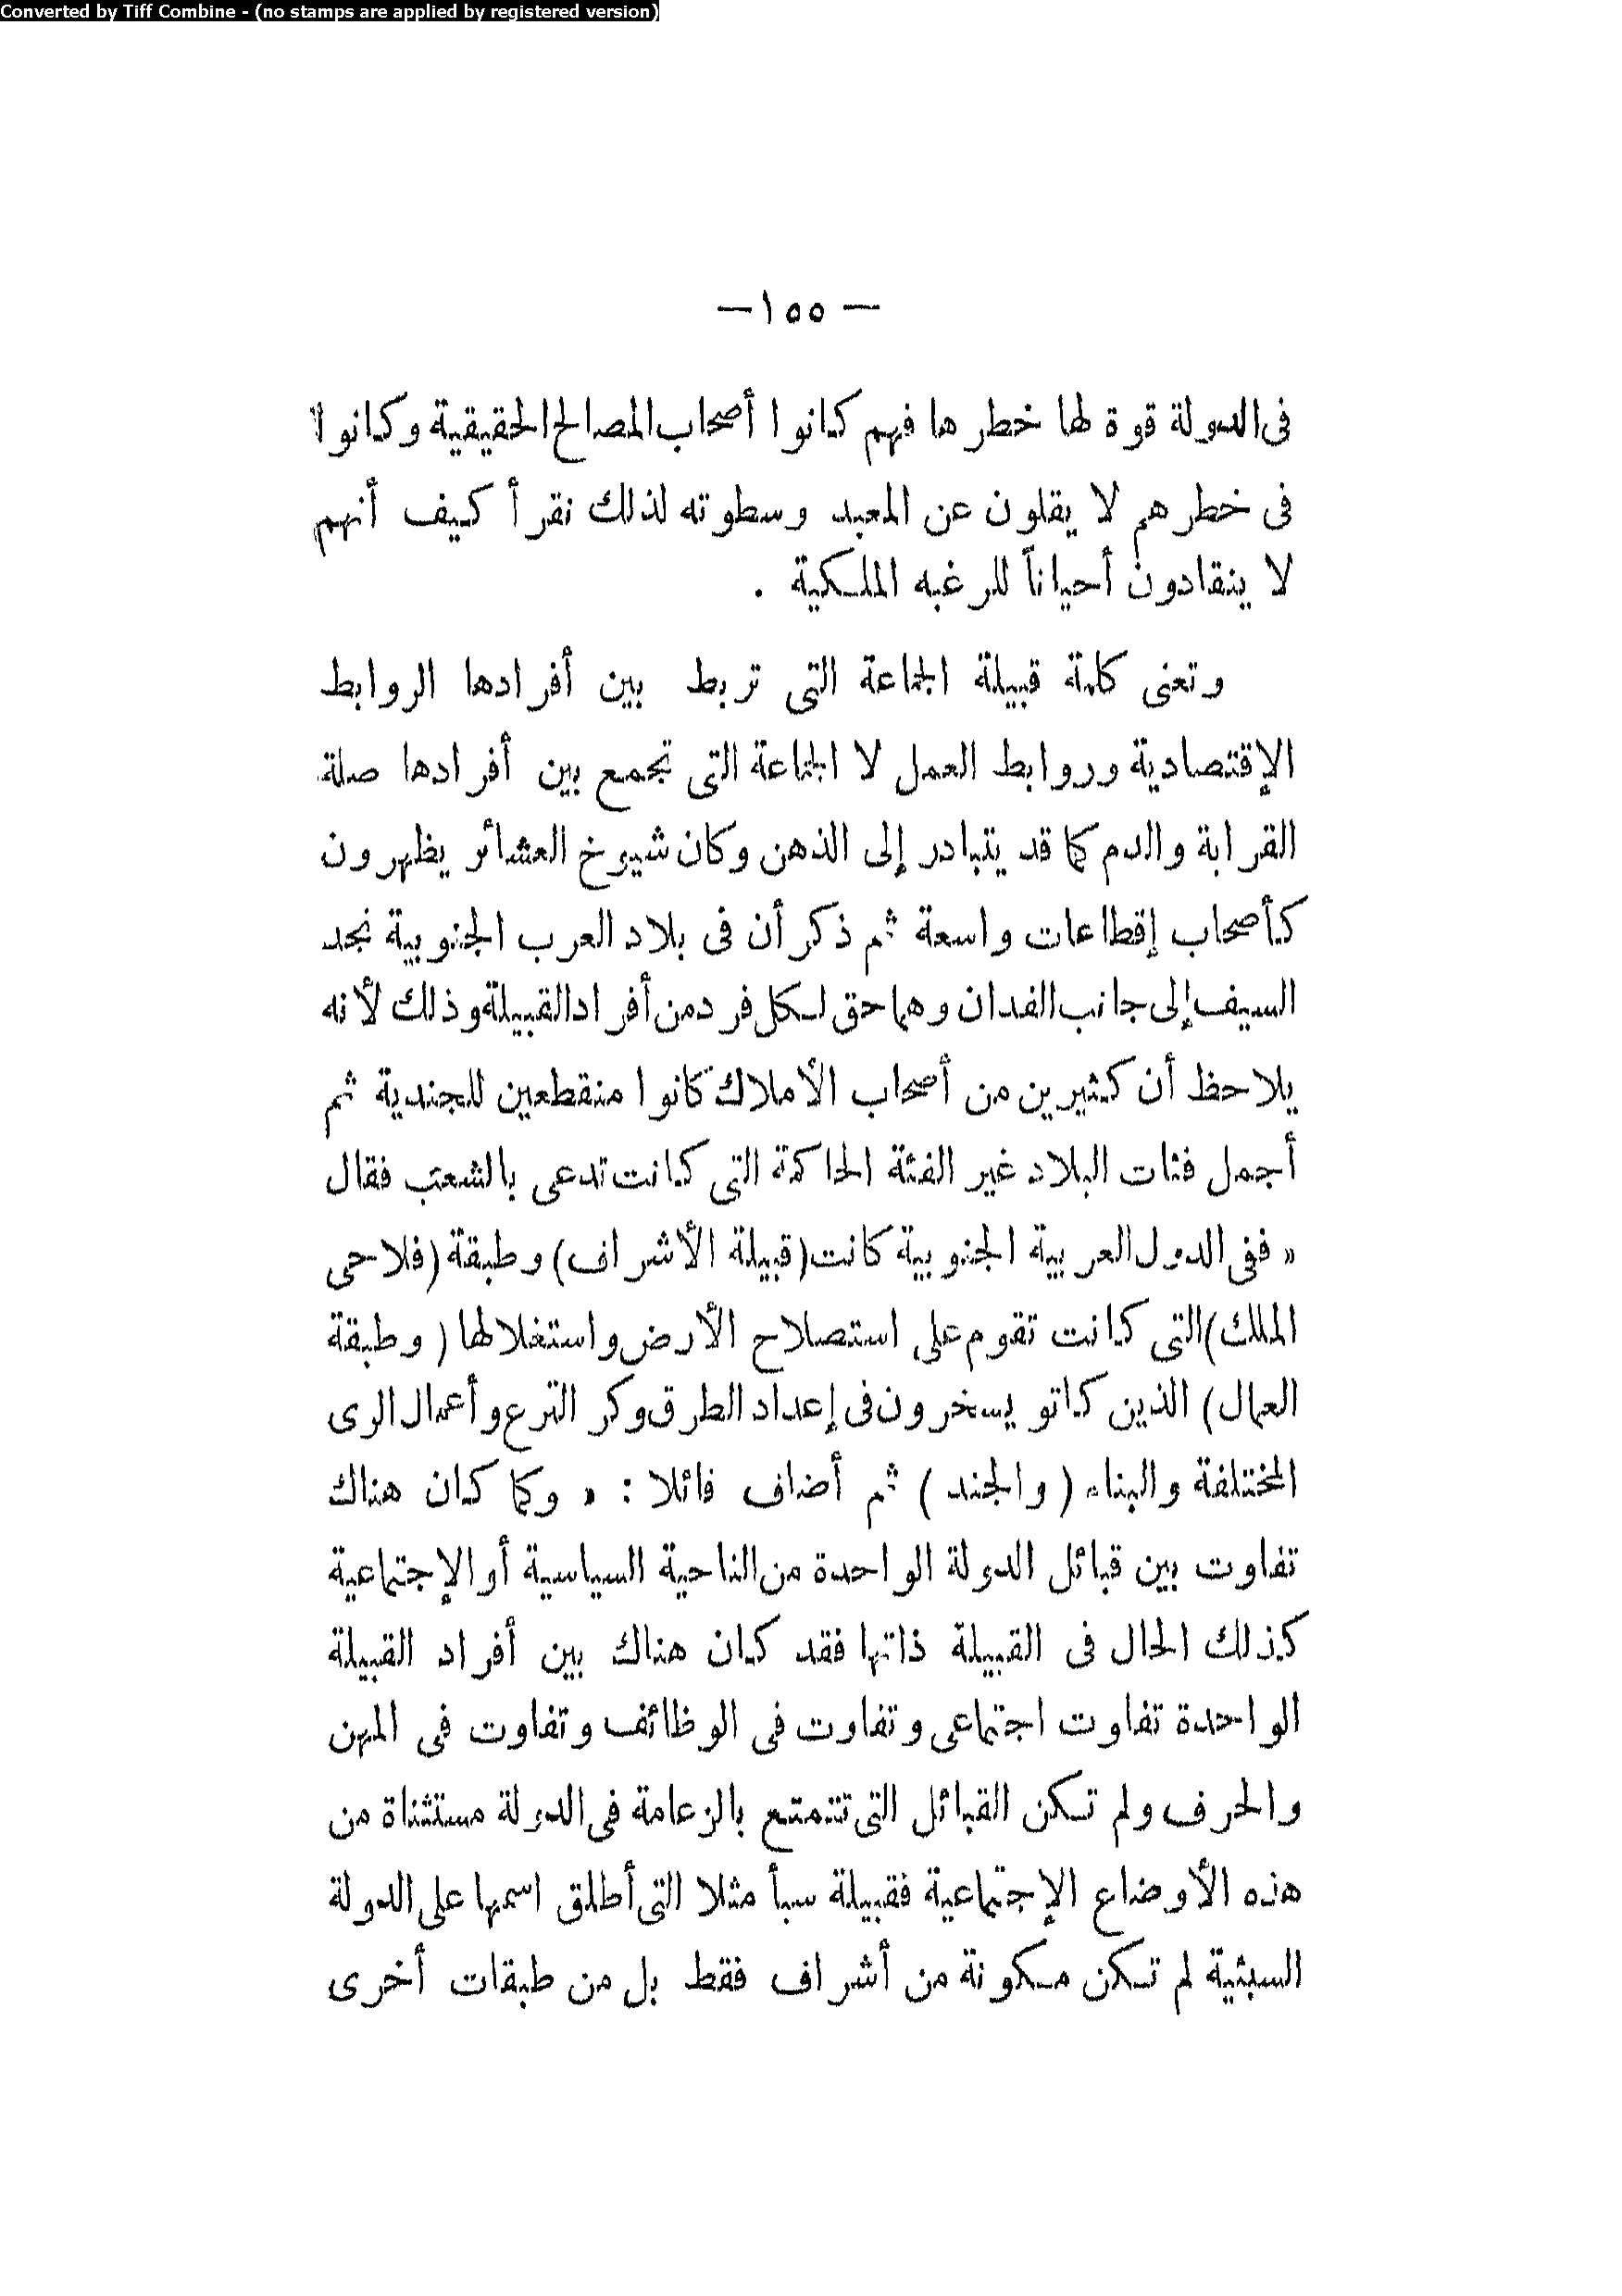 Converted by Tiff Combine - (no stamps are applied by registered version)
— ١٥٥ —
فى الدولة قوة لها خطرها فهم كانوا أصحاب المصالح الحقيقية وكانوا
فى خطرهم لا يقلون عن المعبد وسطوته لذلك نقرأ كيف أنهم
لا ينقادون أحياناً للرغبه الملكية .
وتعنى كلمة قبيلة الجماعة التى تربط بين أفرادها الروابط
الإقتصادية وروابط العمل لا الجماعة التى تجمع بين أفرادها صلة
القرابة والدم كما قد يتبادر إلى الذهن وكان شيوخ العشائر يظهرون
كأصحاب إقطاعات واسعة ثم ذكر أن فى بلاد العرب الجنوبية نجد
السيف إلى جانب الفدان وهما حق لكل فرد من أفراد القبيلة وذلك لأنه
يلاحظ أن كثيرين من أصحاب الأملاك كانوا منقطعين للجندية ثم
أجمل فئات البلاد غير الفئة الحاكمة التى كانت تدعى بالشعب فقال
« ففى الدول العربية الجنوبية كانت (قبيلة الأشراف) وطبقة (فلاحى
الملك) التى كانت تقوم على استصلاح الأرض واستغلالها ( وطبقة
العمال) الذين كاتو يسخرون فى إعداد الطرق وكر الترع وأعمال الرى
المختلفة والبناء ( والجند ) ثم أضاف قائلا : « وكما كان هناك
تفاوت بين قبائل الدولة الواحدة من الناحية السياسية أو الإجتماعية
كذلك الحال فى القبيلة ذاتها فقد كان هناك بين أفراد القبيلة
الواحدة تفاوت اجتماعى وتفاوت فى الوظائف وتفاوت فى المهن
والحرف ولم تكن القبائل التى تتمتع بالزعامة فى الدولة مستثناة من
هذه الأوضاع الإجتماعية فقبيلة سبأ مثلا التى أطلق اسمها على الدولة
السبئية لم تكن مكونة من أشراف فقط بل من طبقات أخرى